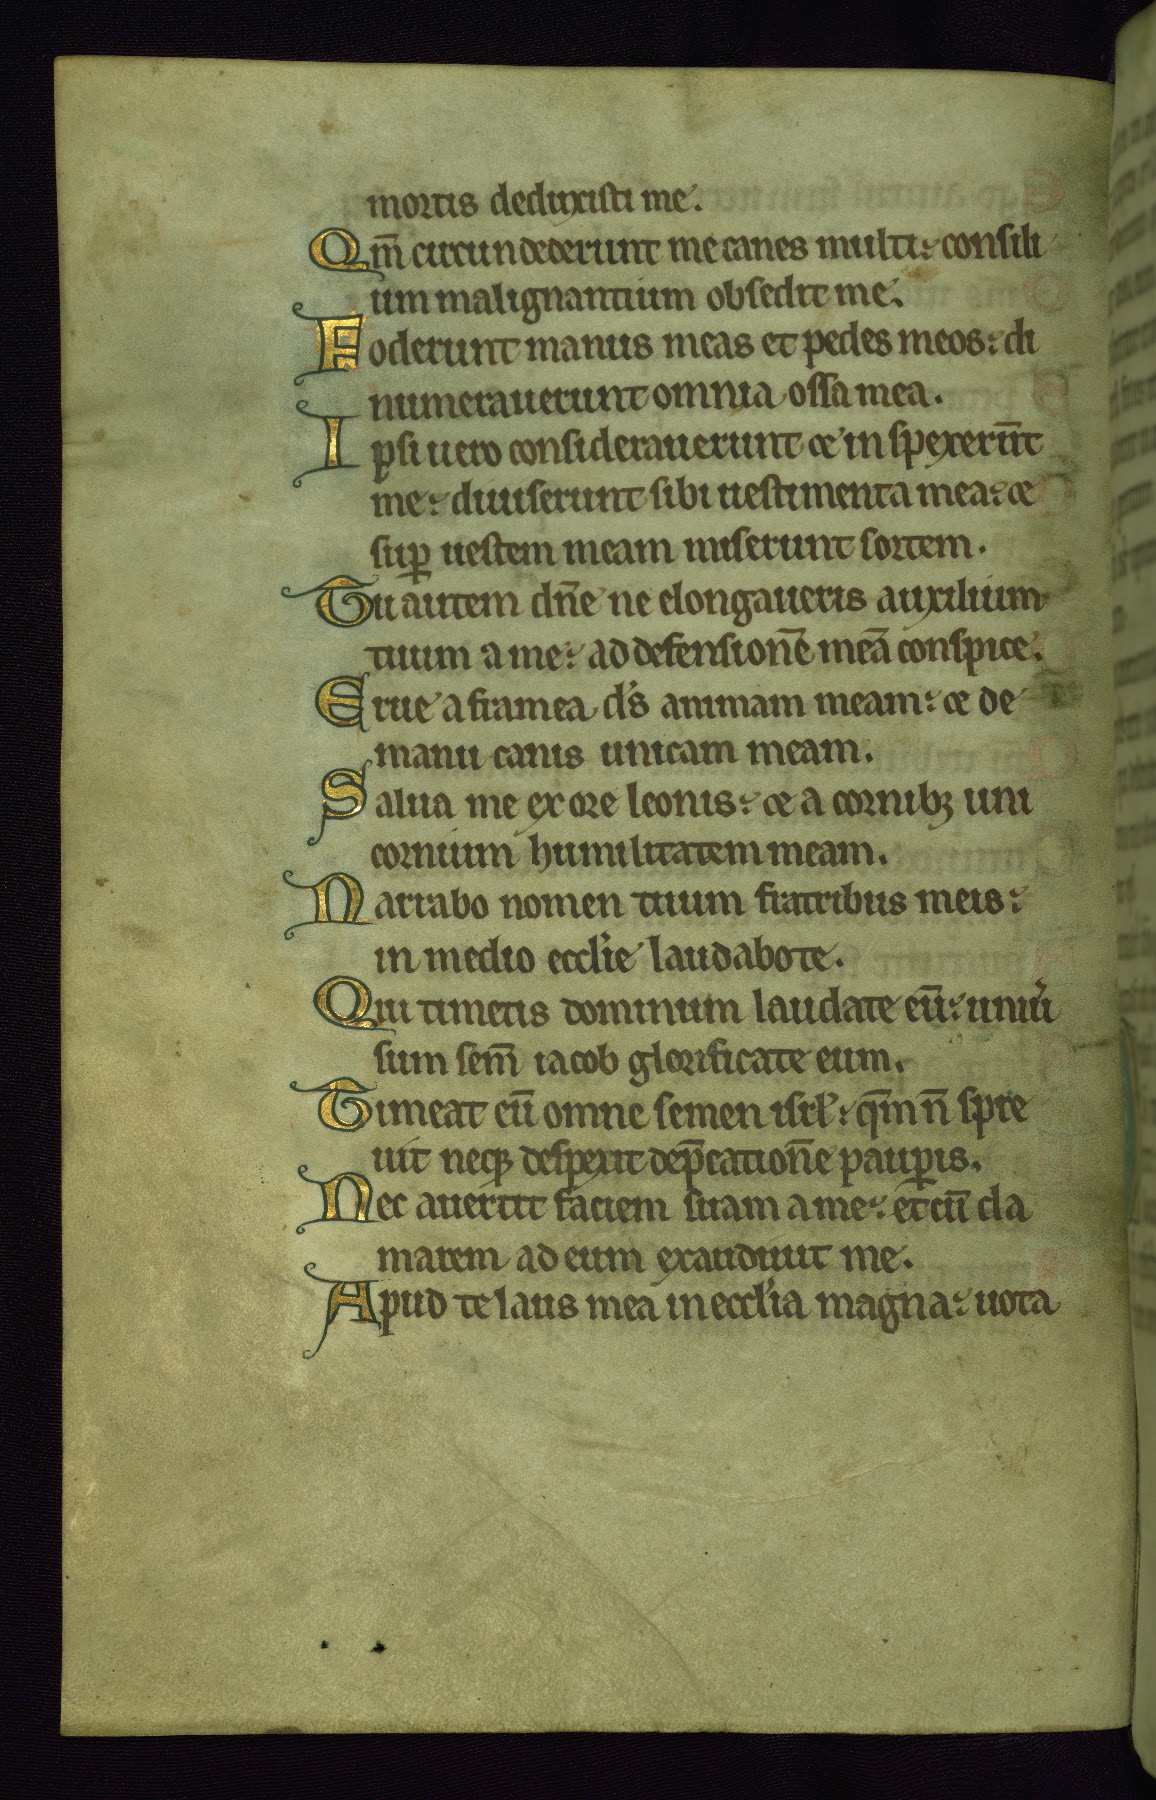 mortis deduxisti me.
Qm̅ circundederunt me canes multi: consili
um malignantium obsedit me.
Foderunt manus meas et pedes meos: di
numerauerunt omnia ossa mea.
Ipsi uero considerauerunt ⁊ in spexerūt
me: diuiserunt sibi uestimenta mea: ⁊
suꝑ uestem meam miserunt sortem.
Tu autem dn̅e ne elongaueris auxilium
tuum a me: ad defensionē meā conspice.
Erue a framea ds̅ animam meam: ⁊ de
manu canis unicam meam.
Salua me ex ore leonis: ⁊ a cornibꝫ uni
cornium humilitatem meam.
Narrabo nomen tuum fratribus meis:
in medio eccl̅ie laudabo te.
Qui timetis dominum laudate eū: uniu̾
sum sem̅ iacob glorificate eum.
Timeat eū omne semen isrl̅: qm̅ n̅ spre
uit neqꝫ despexit dep̅cationē pauꝑis.
Nec auertit faciem suam a me: et cū cla
marem ad eum exaudiuit me.
Apud te laus mea in eccl̅ia magna: uota